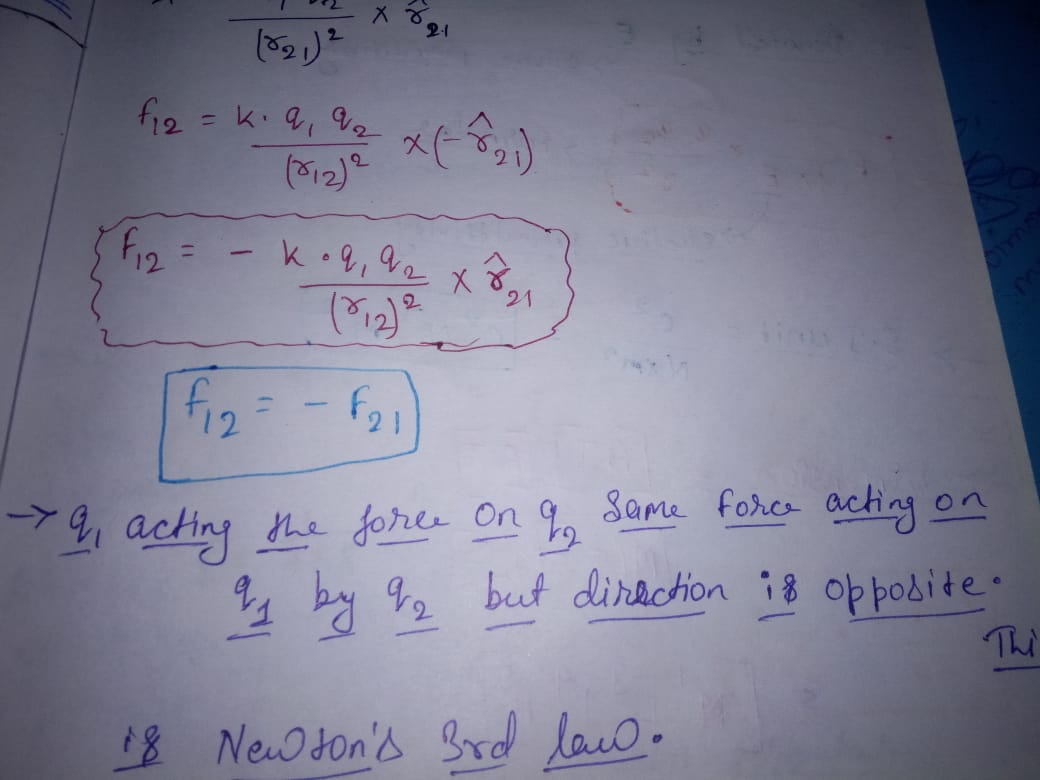 (r21)² × r̂21
f12 = k. q1 q2 / (r12)² × (- r̂21)
F12 = - k • q1 q2 / (r12)² × r̂21
f12 = - F21
→ q1 acting the force on q2 same force acting on
q1 by q2 but direction is opposite.
Thi
is Newton's 3rd law.